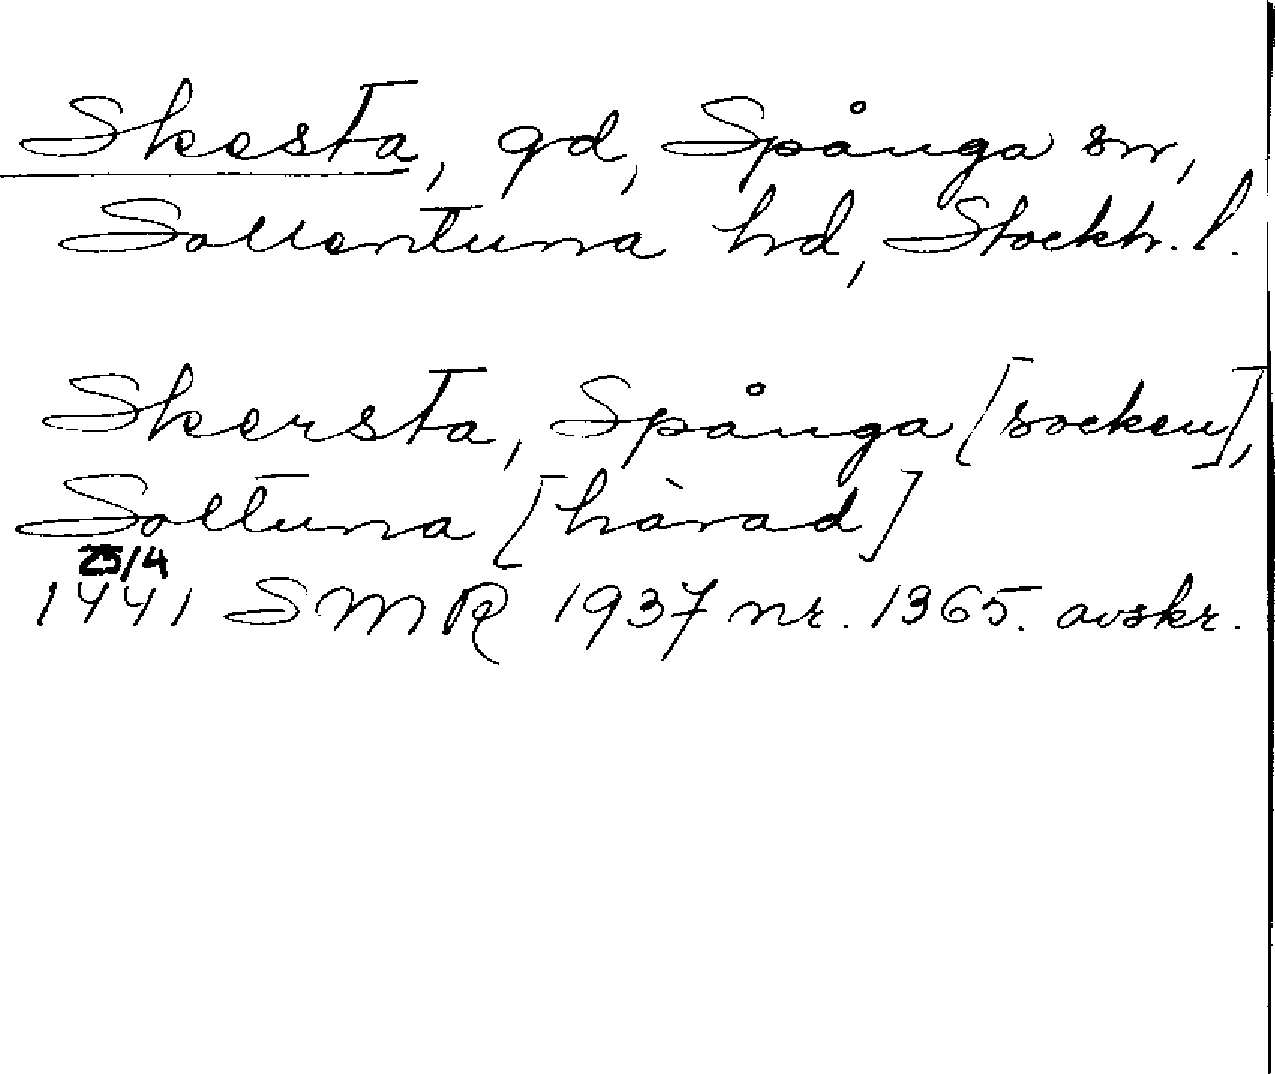 Skesta, gd, Spånga sn,
Sollentuna hd, Stockh. l.
Skersta, Spånga [socken],
Soltuna [härad]
25/4
1441 SMR 1937 nr. 1365. avskr.